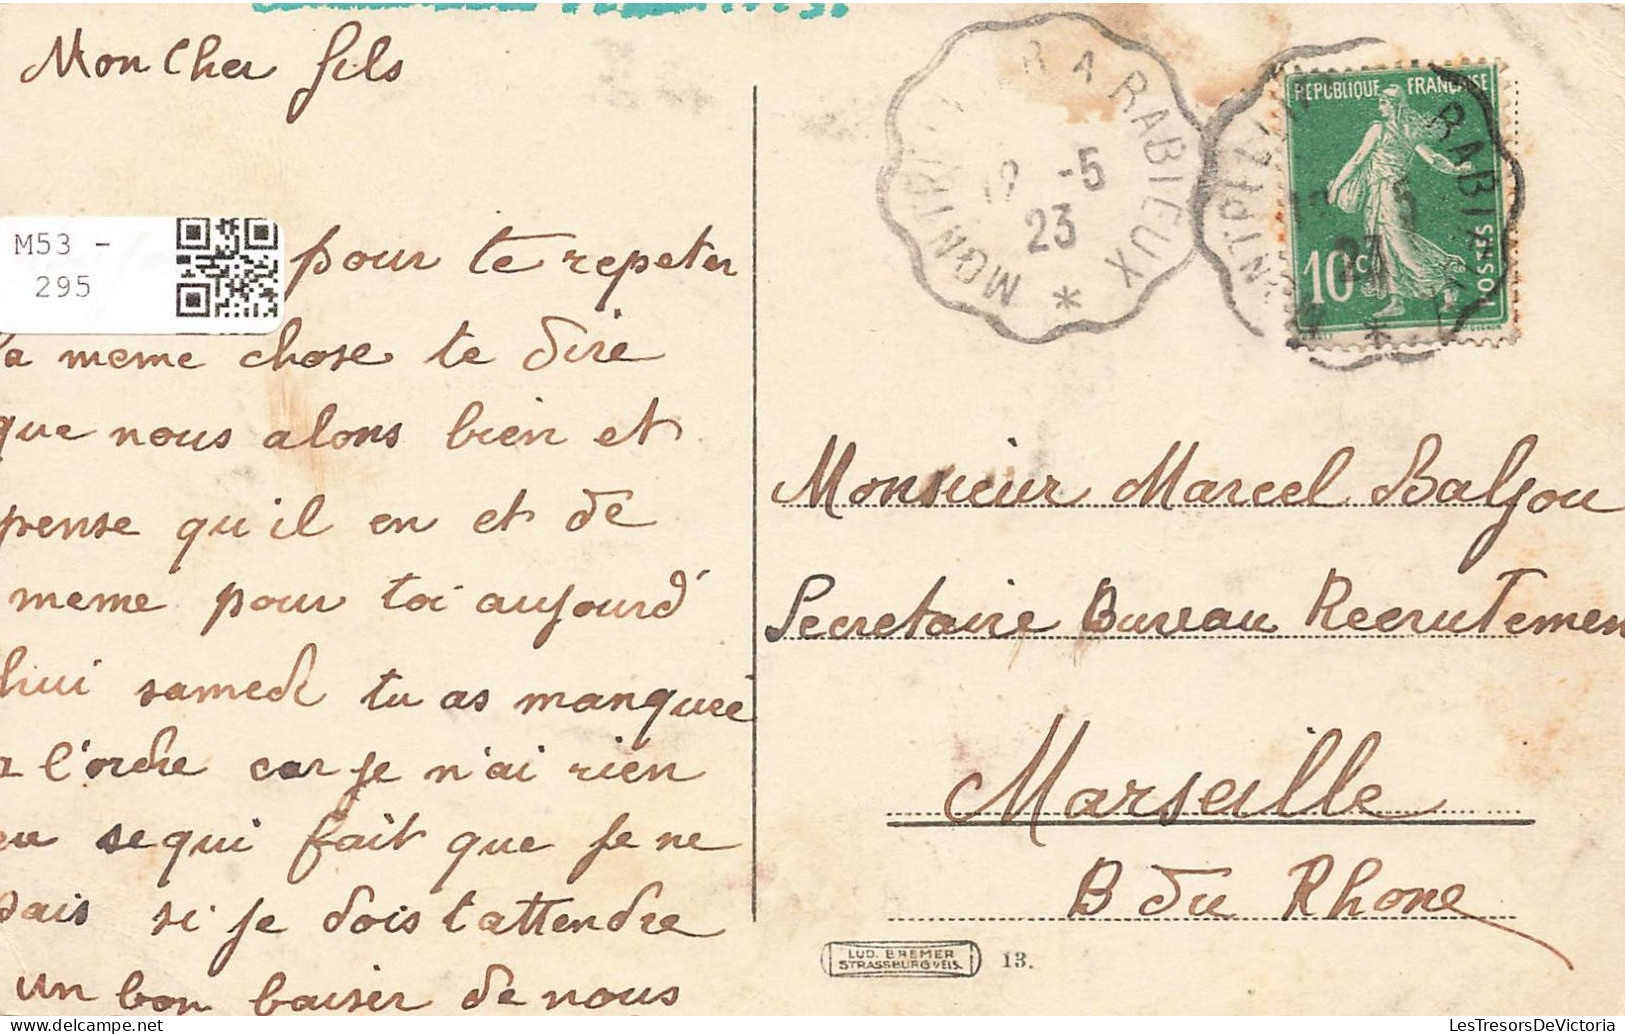 Mon Cher fils
pour te repeter
la meme chose te dire
que nous alons bien et
pense qu'il en et de
meme pour toi aujourd'
hui samedi tu as manqueé
a l'ordre car je n'ai rien
eu se qui fait que je ne
sais si je dois t'attendre
un bon baiser de nous
M53 -
295
MONTPELLIER A RABIEUX *
12 -5
23
REPUBLIQUE FRANÇAISE
10c
POSTES
Monsieur Marcel Baljou
Secretaire Bureau Recrutemen
Marseille
B du Rhone
LUD. BREMER
STRASSBURG i/ELS.
13.
LesTresorsDeVictoria